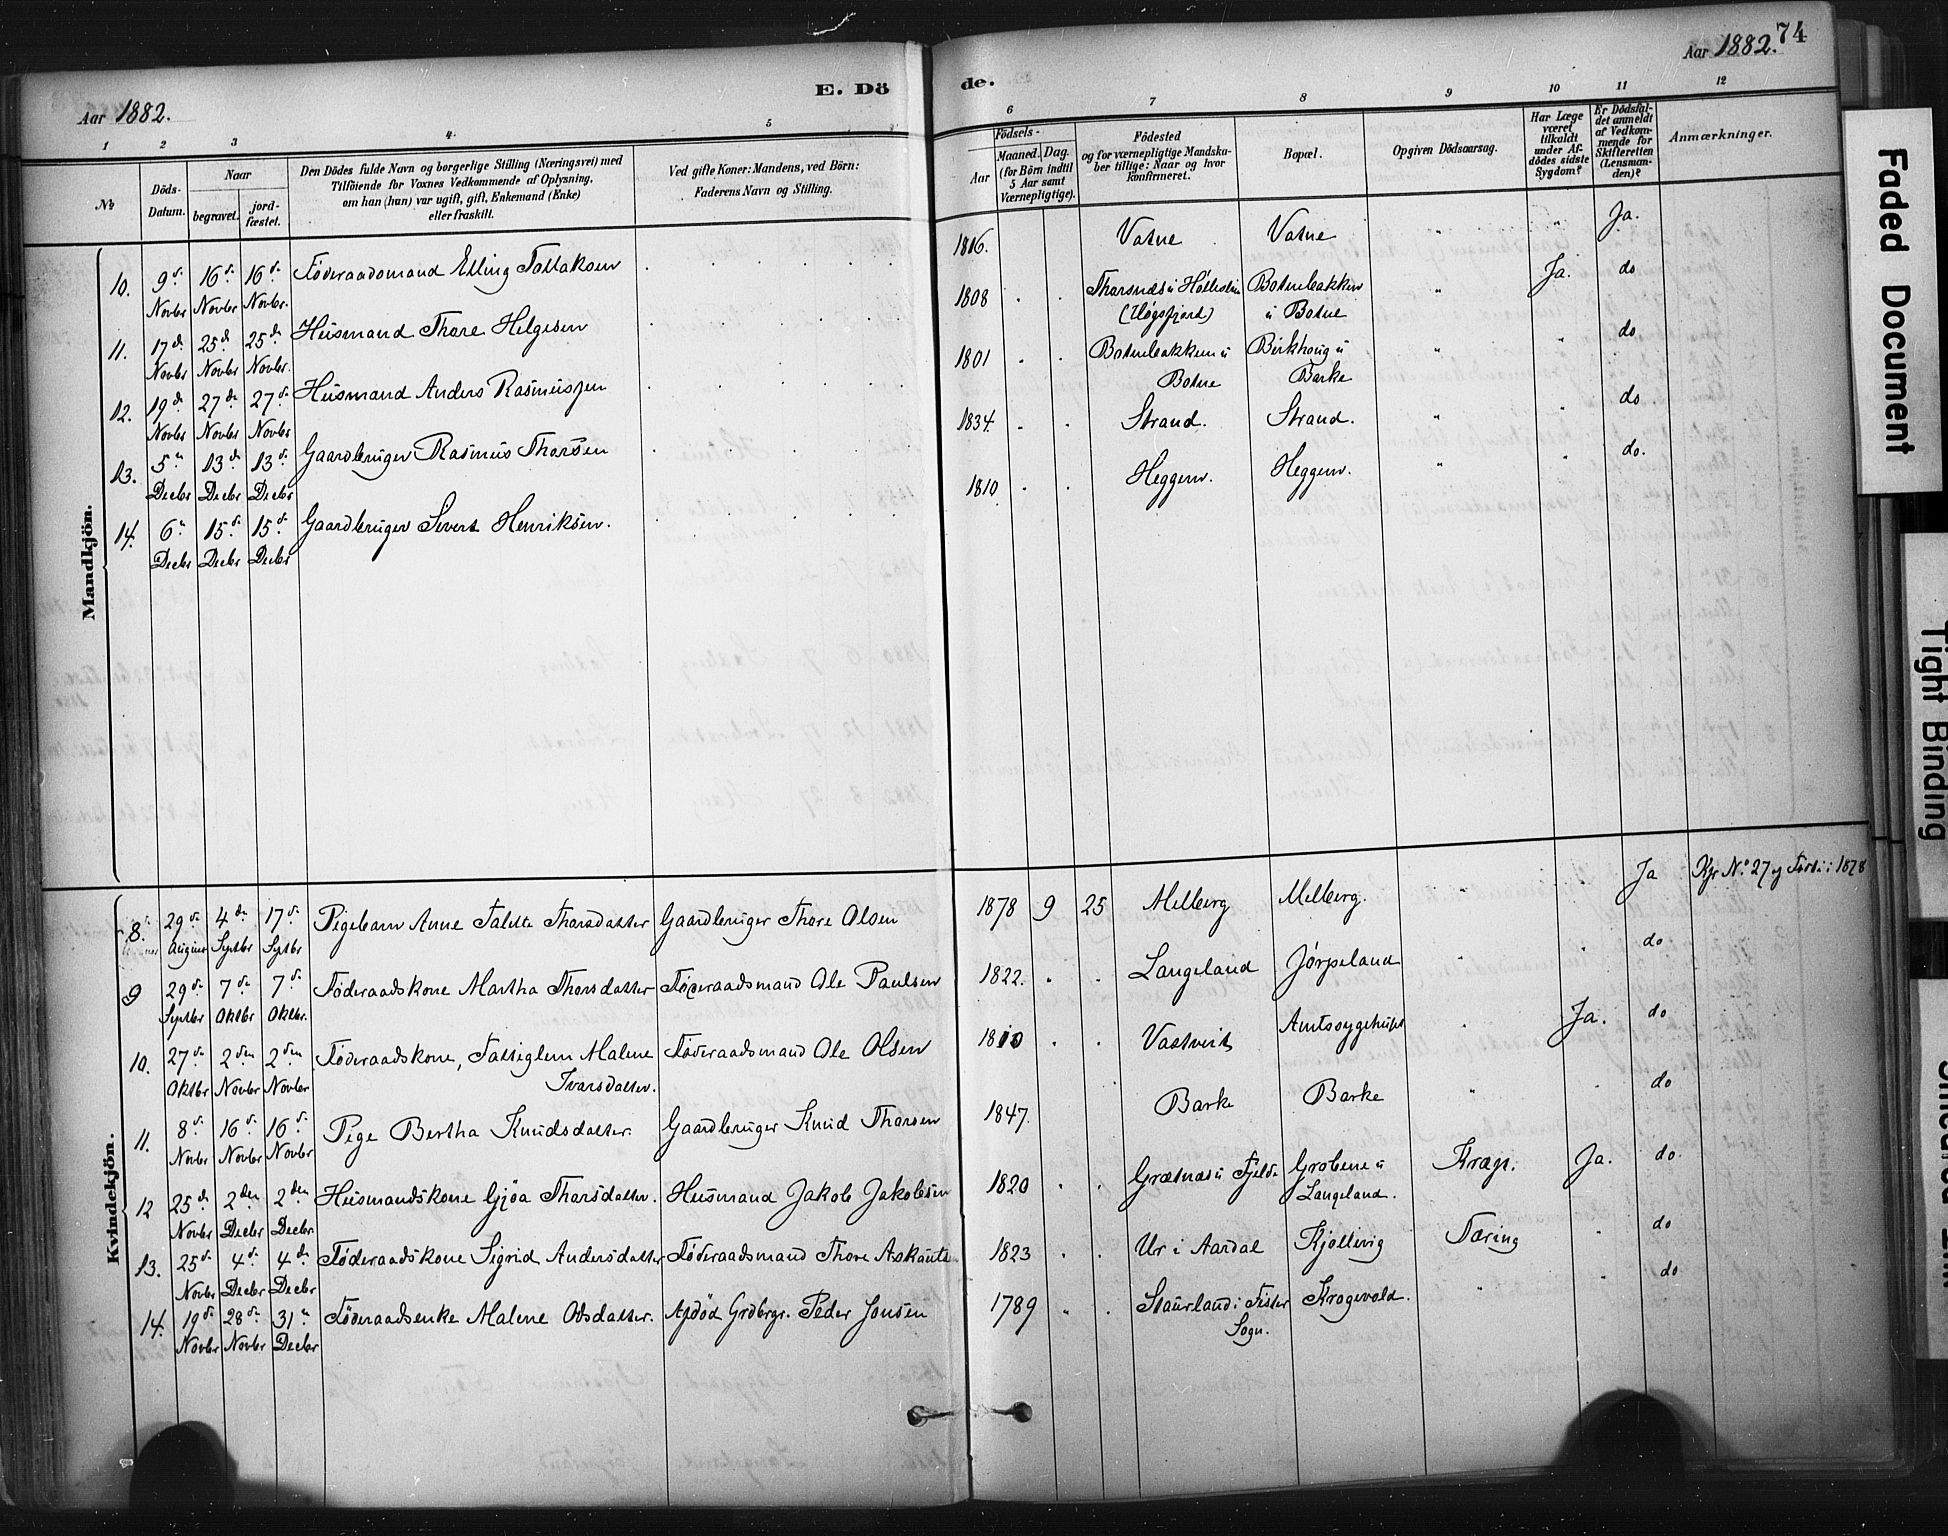 74
Aar 1882.
Aar 1882.
E. Dö
de.
1 2 3 4. 5 6 7 8 9 10 11 12
No
Döds-Datum.
Naar
begravet.
jord-fæstet.
Den Dödes fulde Navn og borgerlige Stilling (Næringsvei) med
Tilföiende for Voxnes Vedkommende af Oplysning,
om han (hun) var ugift, gift, Enkemand (Enke)
eller fraskilt.
Ved gifte Koner: Mandens, ved Börn:
Faderens Navn og Stilling.
Födsels-
Aar
Maaned. Dag.
(for Börn indtil
5 Aar samt
Værnepligtige).
Födested
og for værnepligtige Mandska-
ber tillige: Naar og hvor
konfirmeret.
Bopæl.
Opgiven Dödsaarsag.
Har Læge
været
tilkaldt
under Af-
dödes sidste
Sygdom?
Er Dödsfal-
det anmeldt
af Vedkom-
mende for
Skifteretten
(Lensman-
den)?
Anmærkninger.
Mandkjön.
10. 9de Novbr 16de Novbr 16de Novbr. Föderaadsmand Elling Tollaksen 1816. Vatne Vatne " " Ja.
11. 17de Novbr 25de Novbr 25de Novbr. Husmand Thore Helgesen 1808 Thorsnæs u Hölleslin Botnebakken " Ja. do
(Högsfjord) u Botne
12. 19de Novbr 27de Novbr 27de Novbr Husmand Anders Rasmussen 1801 Botnebakken u Birkhoug u " " do
Botne Barke
13. 5te Decbr 13de Decbr 13de Decbr Gaardbruger Rasmus Thorsen 1834 Strand. Strand. " " do
14. 6te Decbr 15de Decbr 15de Decbr Gaardbruger Sivert Henriksen. 1810 Heggem. Heggem. " " do.
Kvindekjön.
8. 29de August 4de Septbr 17de Septbr Pigebarn Anne Thorsdatter Gaardbruger Thore Olsen 1878 9 25 Melberg Melberg. Ja Kjr No 27 af Födte i 1878
9 29de Septbr 7de Oktbr 7de Oktbr. Föderaadskone Martha Thorsdatter Föderaadsmand Ole Paulsen 1822. Langeland Jørpeland " . do
10. 27de Oktbr 2den Novbr 2den Novbr Föderaadskone, Fattiglem Malene Föderaadsmand Ole Olsen 1810 Vastveit Amtssygehuset " Ja. do
Ivarsdatter.
11. 8de Novbr 16de Novbr 16de Novbr Pige Bertha Knudsdatter. Gaardbruger Knud Thorsen 1847. Barke Barke " . do
12 25de Novbr 2den Decbr 2den Decbr Husmandskone Gjöa Thorsdatter. Husmand Jakob Jakobsen 1820 Grætnæs u Fjelde Grobene u Kræft. Ja. do.
Langeland.
13. 25de Novbr 4de Decbr 4de Decbr Föderaadskone Sigrid Andersdatter Föderaadsmand Thore 1823 Ur i Aardal Kjöllevig Tæring . do
14. 19de Novbr 28de Novbr 31te Decbr Föderaadsenke Malene Odsdatter. Afdöd Grdbrgr. Peder Jonsen 1789 Staurland i Fister Krogevold. " " do
Sogn.
Faded Document
Tight Binding